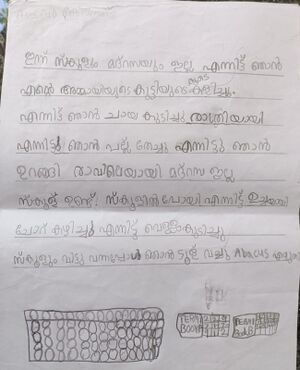 ഇന്ന് സ്കൂളും മദ്റസയും ഇല്ല എന്നിട്ട് ഞാൻ
എന്റെ അമ്മായിയുടെ കുട്ടിയുടെ കൂടെ കളിച്ചു.
എന്നിട്ട് ഞാൻ ചായ കുടിച്ചു രാത്രിയായി
എന്നിട്ട് ഞാൻ പല്ല് തേച്ചു എന്നിട്ടു ഞാൻ
ഉറങ്ങി രാവിലെയായി മദ്റസ ഇല്ല
സ്കൂള് ഉണ്ട്. സ്കൂളിൽ പോയി എന്നിട്ട് ഉച്ചയായി
ചോറ് കഴിച്ചു എന്നിട്ട് വെള്ളം കുടിച്ചു
സ്കൂളും വിട്ടു വന്നപ്പോൾ ഞാൻ ട്ടൂള് വച്ചു Abacus എടുത്ത്